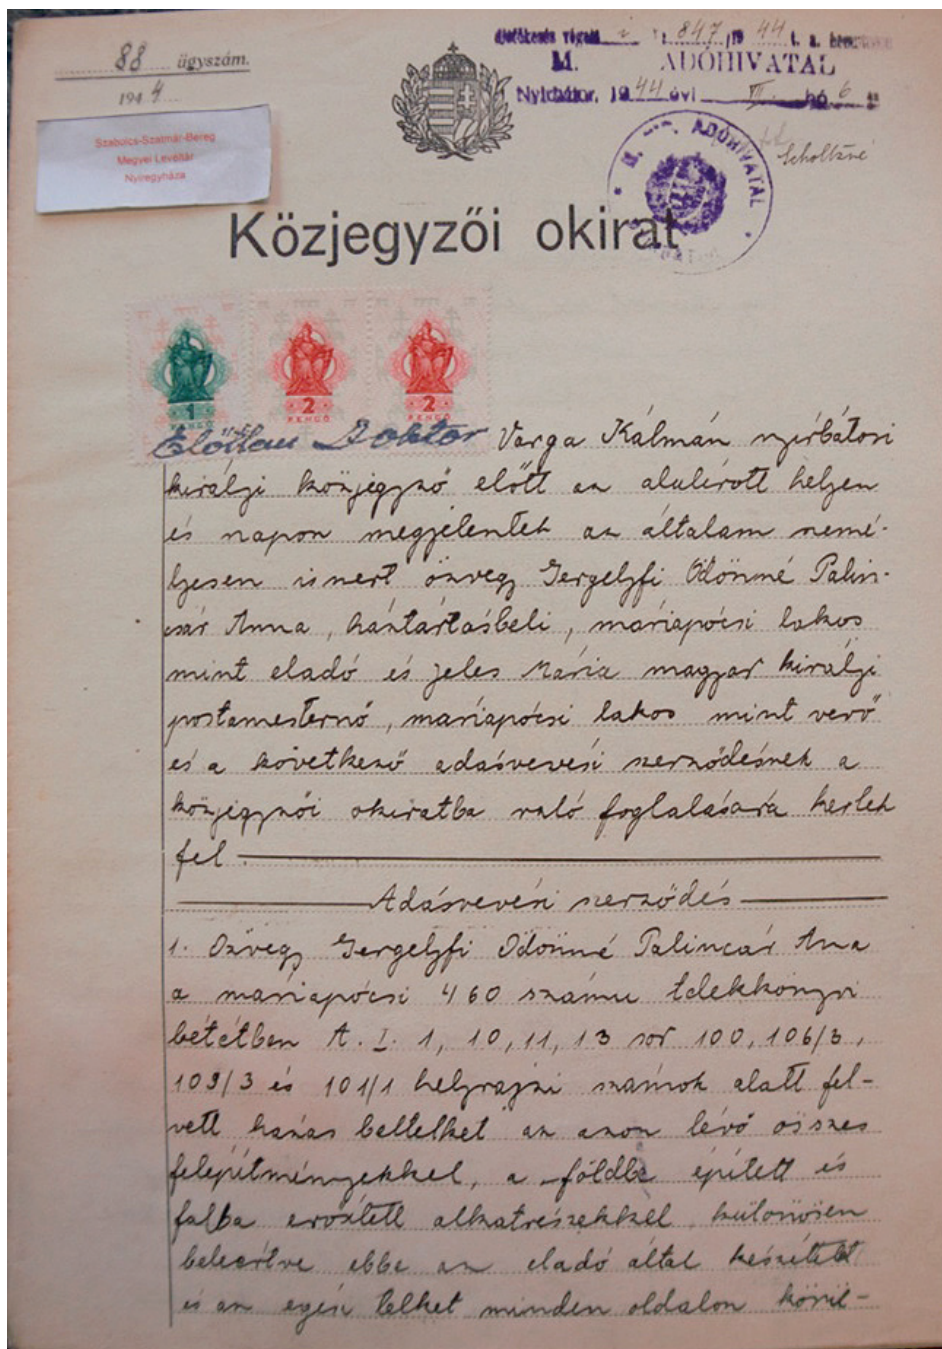 88 ügyszám.
1944
Szabolcs-Szatmár-Bereg
Megyei Levéltár
Nyíregyháza
847/1944
M. ADÓHIVATAL
Nyírbátor, 1944 évi VII. hó 6
M. ADÓHIVATAL
Scholtzné
Közjegyzői okirat
1 PENGŐ
2 PENGŐ
2 PENGŐ
Előttem Doktor Varga Kálmán nyírbátori
királyi közjegyző előtt az alulírott helyen
és napon megjelentek az általam szemé-
lyesen ismert özvegy Gergelyfi Ödönné Palin-
csár Anna, háztartásbeli, máriapócsi lakos
mint eladó és Jeles Mária magyar királyi
postamesternő, máriapócsi lakos mint vevő
és a következő adásvevési szerződésnek a
közjegyzői okiratba való foglalására kertek
fel.
Adásvevési szerződés
1. Özvegy Gergelyfi Ödönné Palincsár Anna
a máriapócsi 460 számu telekkönyvi
betétben A. I. 1, 10, 11, 13 sor 100, 106/3,
109/3 és 101/1 helyrajzi számok alatt fel-
vett házas beltelket az azon lévő összes
felépítményekkel, a földbe épített és
falba erősített alkatrészekkel különösen
beleértve ebbe az eladó által készített
és az egész telket minden oldalon körül-